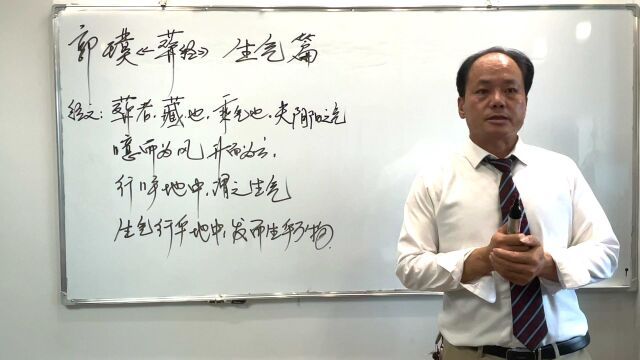 郭璞《葬经》生气篇
经文:葬者,藏也,乘气也,夫阴阳之气
噫而为风,升而为云,
行乎地中,谓之生气
生气行乎地中,发而生乎万物.